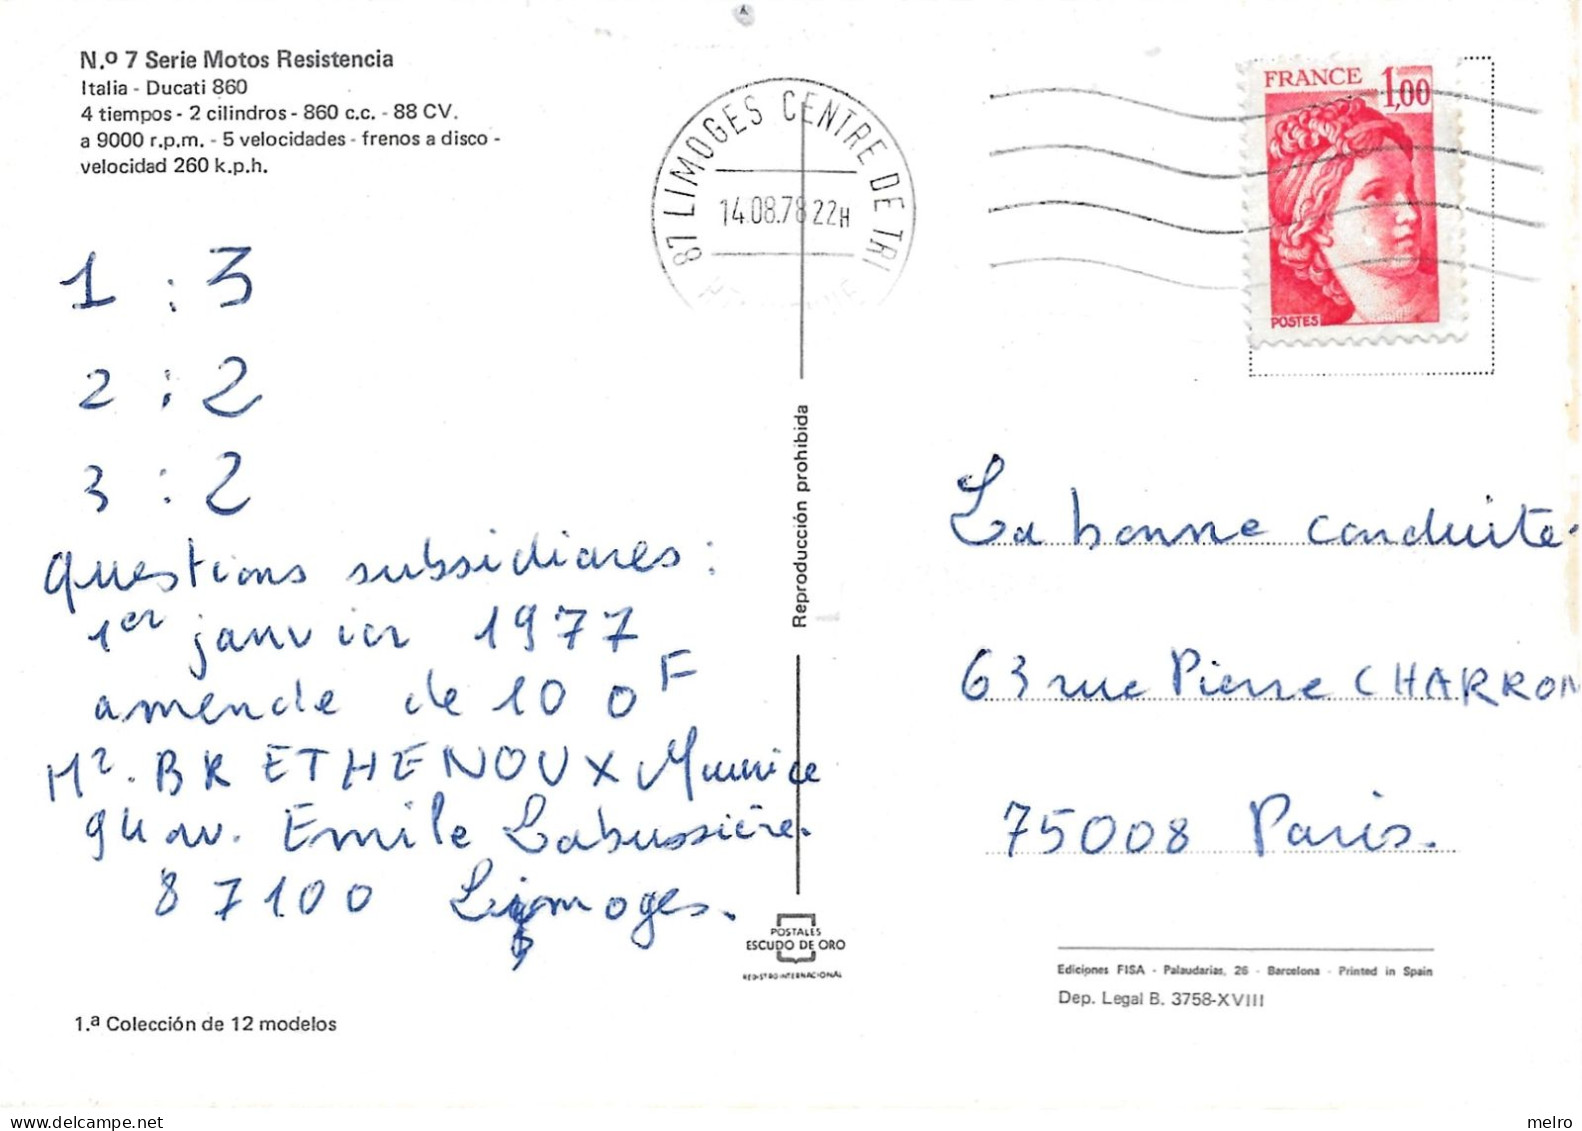 N.º 7 Serie Motos Resistencia
Italia - Ducati 860
4 tiempos - 2 cilindros - 860 c.c. - 88 CV.
a 9000 r.p.m. - 5 velocidades - frenos a disco -
velocidad 260 k.p.h.
1 : 3
2 : 2
3 : 2
questions subsidiares :
1er janvier 1977
amende de 100F
Mr. BRETHENOUX Maurice
94 av. Emile Labussière.
87100 Limoges.
1.ª Colección de 12 modelos
87 LIMOGES CENTRE DE TRI
14.08.78 22H
Reproducción prohibida
POSTALES
ESCUDO DE ORO
REGISTRO INTERNACIONAL
FRANCE 1,00
POSTES
La bonne conduite.
63 rue Pierre CHARRON
75008 Paris.
Ediciones FISA - Palaudarias, 26 - Barcelona - Printed in Spain
Dep. Legal B. 3758-XVIII
melro